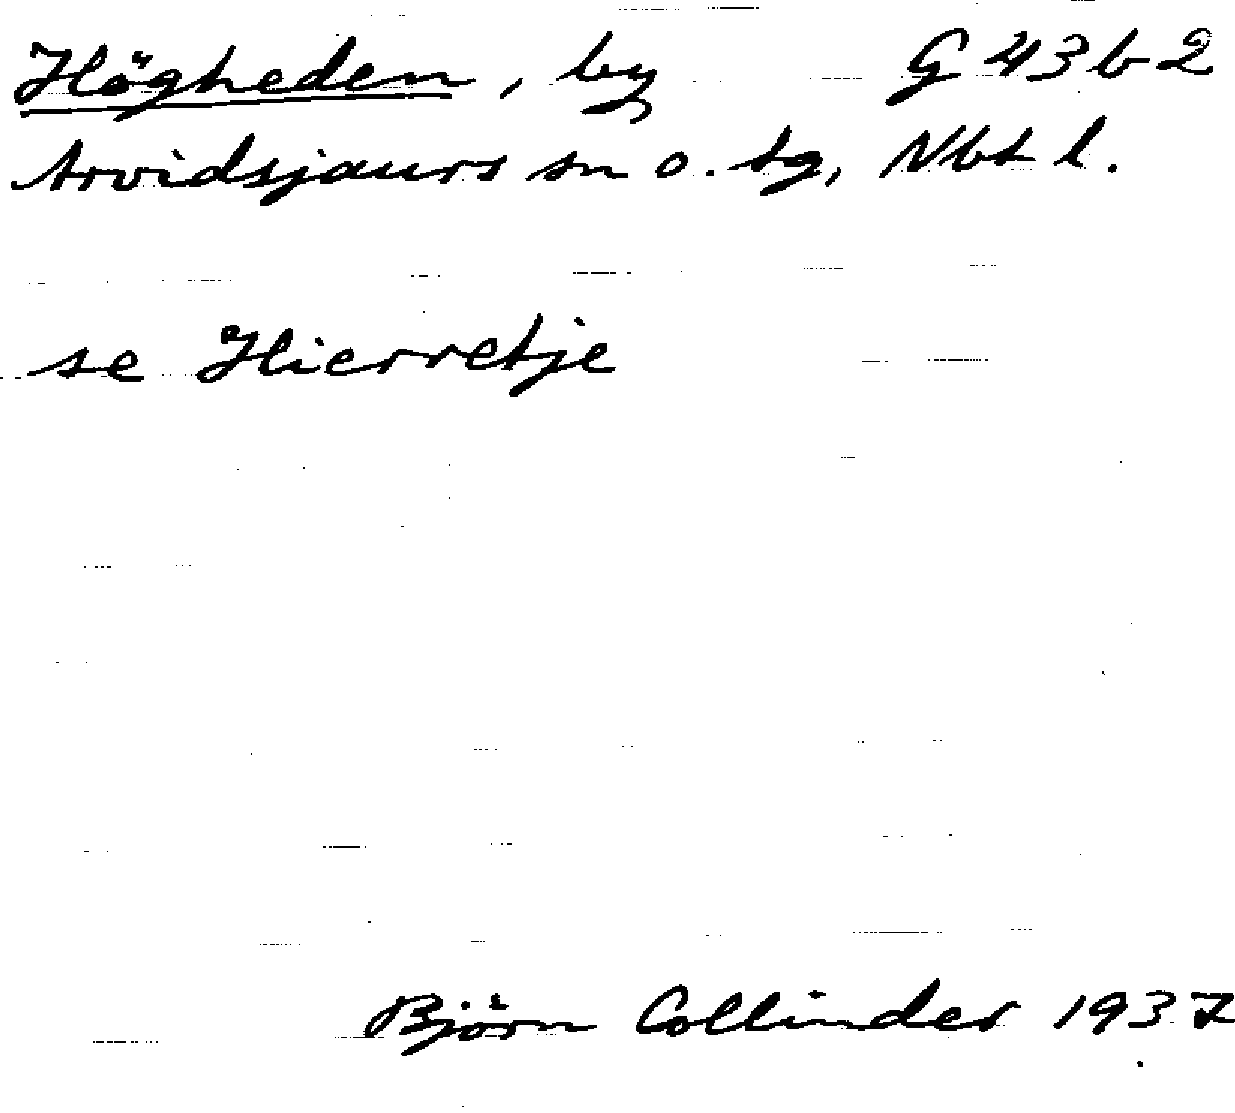 Högheden, by G 43 b 2
Arvidsjaurs sn o. tg, Nbt l.
se Hierretje
Björn Collinder 1937